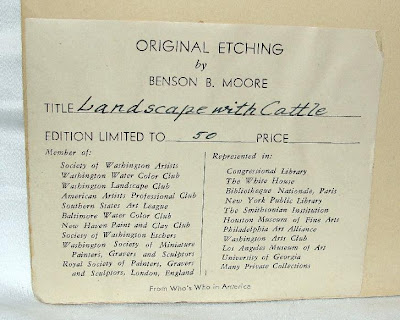 ORIGINAL ETCHING
by
BENSON B. MOORE
TITLE Landscape with Cattle
EDITION LIMITED TO 50 PRICE
Member of:
Society of Washington Artists
Washington Water Color Club
Washington Landscape Club
American Artists Professional Club
Southern States Art League
Baltimore Water Color Club
New Haven Paint and Clay Club
Society of Washington Etchers
Washington Society of Miniature
Painters, Gravers and Sculptors
Royal Society of Painters, Gravers
and Sculptors, London, England
Represented in:
Congressional Library
The White House
Bibliotheque Nationale, Paris
New York Public Library
The Smithsonian Institution
Houston Museum of Fine Arts
Philadelphia Art Alliance
Washington Arts Club
Los Angeles Museum of Art
University of Georgia
Many Private Collections
From Who's Who in America